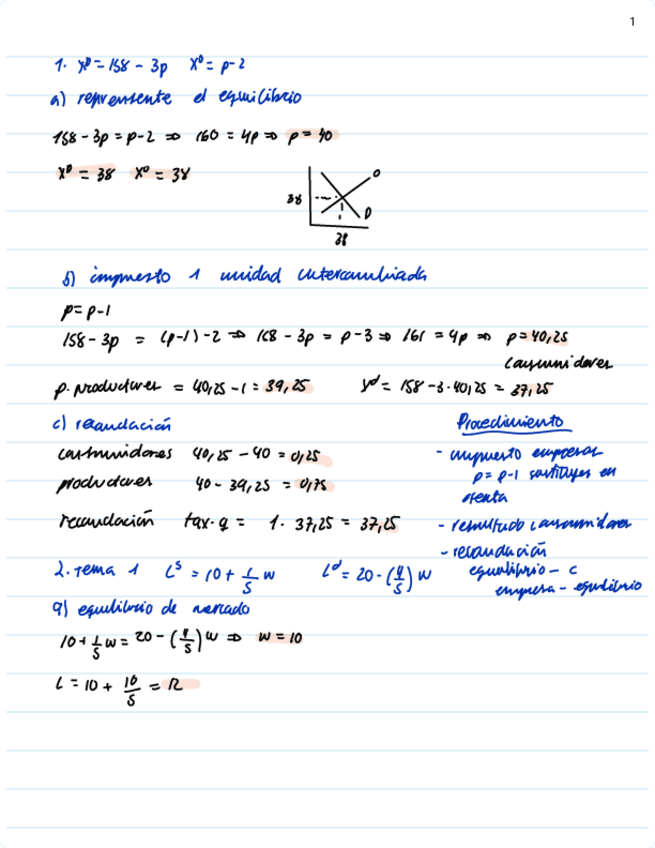 1
1. x^D = 158 - 3p x^O = p - 2
a) represente el equilibrio
158 - 3p = p - 2 ⇒ 160 = 4p ⇒ p = 40
x^D = 38 x^O = 38
O
38
D
38
b) impuesto 1 unidad intercambiada
p = p - 1
158 - 3p = (p - 1) - 2 ⇒ 158 - 3p = p - 3 ⇒ 161 = 4p ⇒ p = 40,25
consumidores
p. productores = 40,25 - 1 = 39,25 x^d = 158 - 3 · 40,25 = 37,25
c) recaudación
consumidores 40,25 - 40 = 0,25
productores 40 - 39,25 = 0,75
recaudación tax · q = 1 · 37,25 = 37,25
Procedimiento
- impuesto empresas
p = p - 1 sustituyes en
oferta
- resultado consumidores
- recaudación
equilibrio - c
empresa - equilibrio
2. tema 1 L^S = 10 + 1/5 w L^d = 20 - (4/5) w
a) equilibrio de mercado
10 + 1/5 w = 20 - (4/5) w ⇒ w = 10
L = 10 + 10/5 = 12